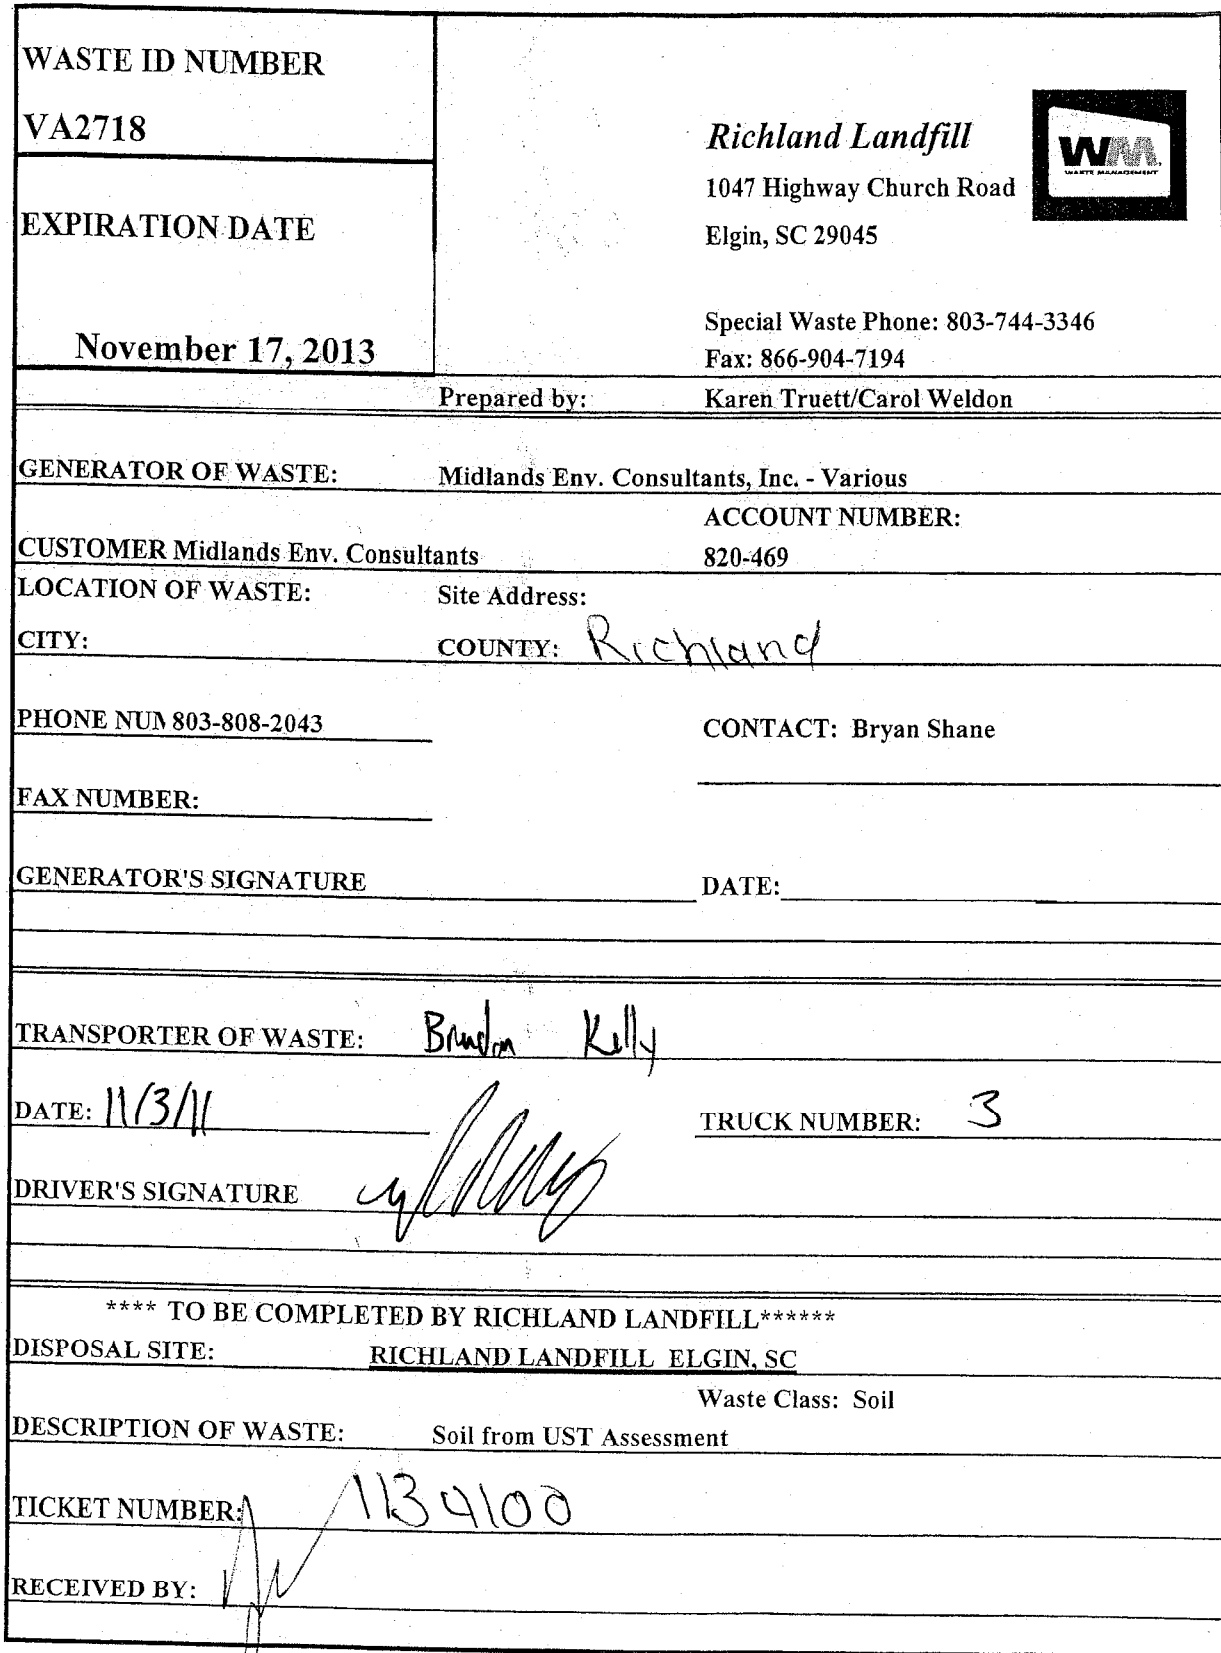 WASTE ID NUMBER
VA2718
EXPIRATION DATE
November 17, 2013
Richland Landfill
1047 Highway Church Road
Elgin, SC 29045
WM
WASTE MANAGEMENT
Special Waste Phone: 803-744-3346
Fax: 866-904-7194
Prepared by: Karen Truett/Carol Weldon
GENERATOR OF WASTE: Midlands Env. Consultants, Inc. - Various
ACCOUNT NUMBER:
CUSTOMER Midlands Env. Consultants 820-469
LOCATION OF WASTE: Site Address:
CITY: COUNTY: Richland
PHONE NUM 803-808-2043 CONTACT: Bryan Shane
FAX NUMBER:
GENERATOR'S SIGNATURE DATE:
TRANSPORTER OF WASTE: Brandon Kelly
DATE: 11/3/11 TRUCK NUMBER: 3
DRIVER'S SIGNATURE
**** TO BE COMPLETED BY RICHLAND LANDFILL******
DISPOSAL SITE: RICHLAND LANDFILL ELGIN, SC
Waste Class: Soil
DESCRIPTION OF WASTE: Soil from UST Assessment
TICKET NUMBER: 1134100
RECEIVED BY: